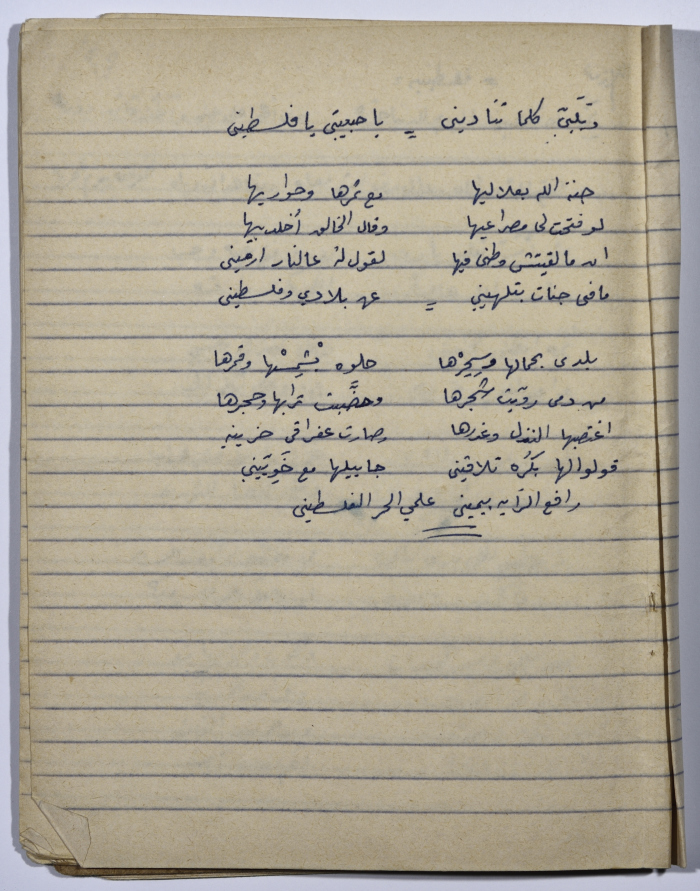 وَتْلَبّي كلما تنادينى = يا حبيبتي يا فلسطينى
جنة الله بعلاليها مع ثمرها وحواريها
لو فتحت لى مصراعيها وقال الخالق أخلد بيها
ان ما لقيتش وطنى فيها لقول له عالنار ارمينى
ما فى جنات بتلهيني = عن بلادي وفلسطينى
بلدى بجمالها وسِحِرْها حلوه بْشَمِسْها وقمرها
من دمى روّيت شجرها وخضَّبت ترابها وحجرها
اغتصبها النذل وغدرها وصارت عفراقى حزينه
قولوالها بَكْره تلاقينى جاييلها مع خَوِيِّيني
رافع الرّايه بيمينى علمي الحر الفلسطينى